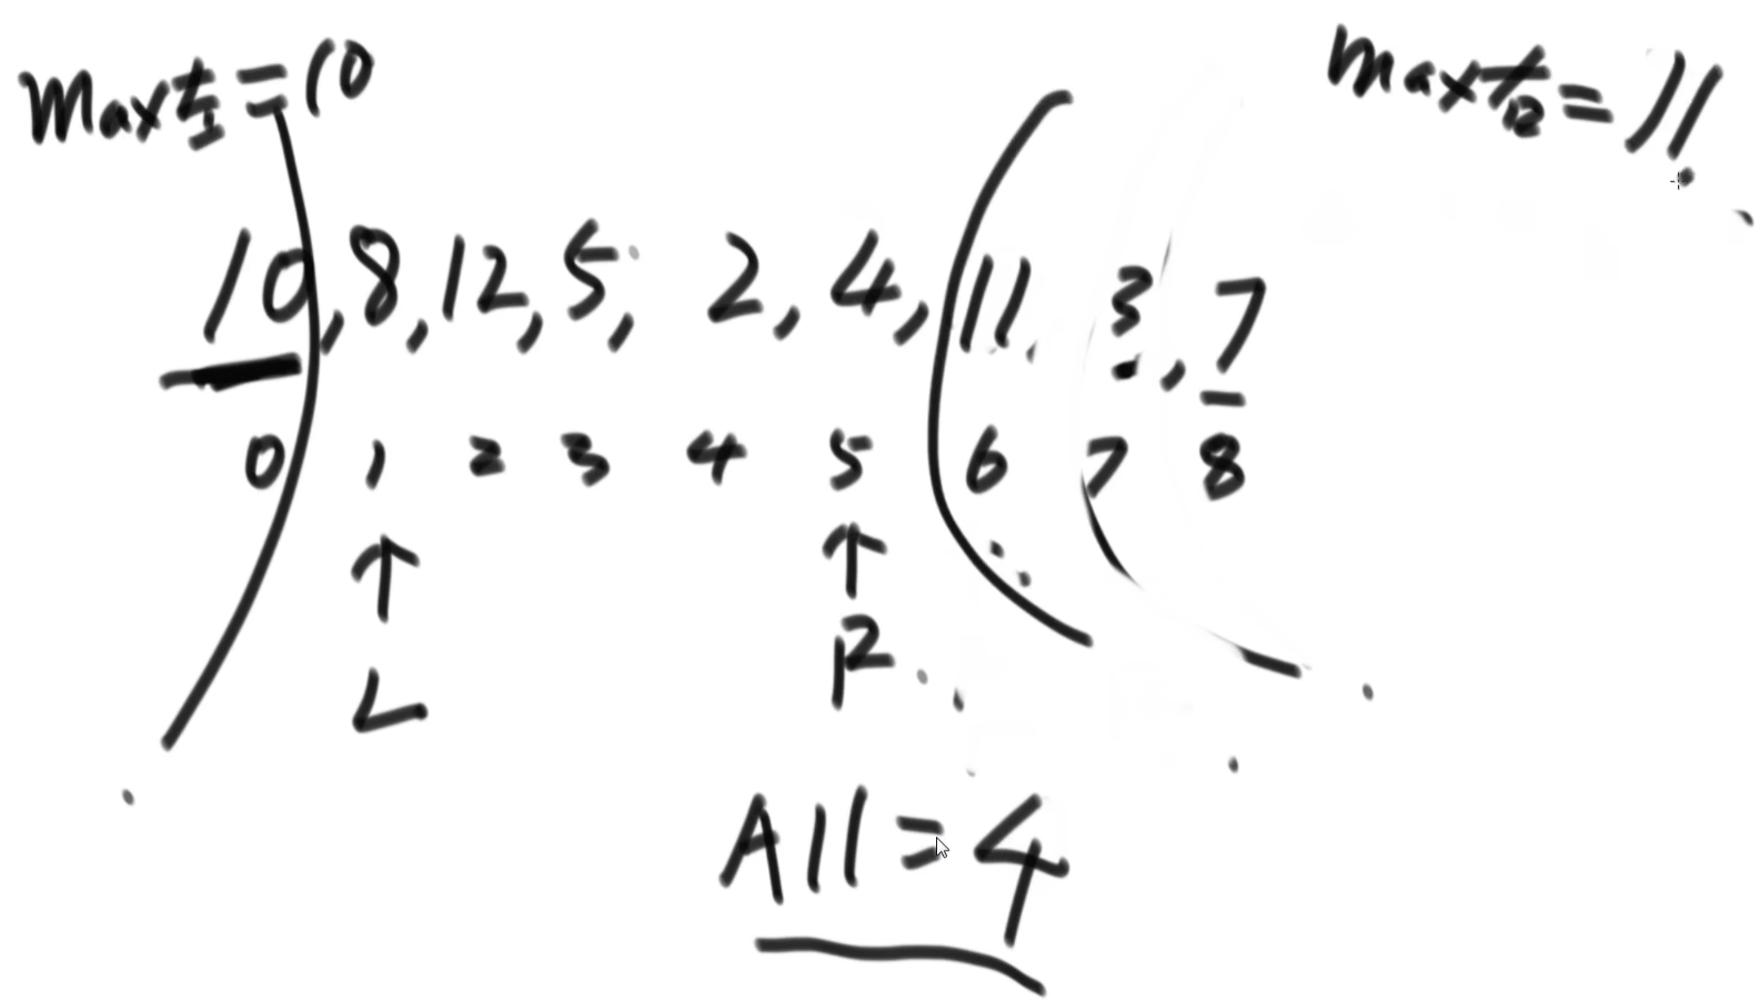 Max左=10
Max右=11
10,8,12,5, 2,4,11, 3,7
0 1 2 3 4 5 6 7 8
↑ ↑
L R
All=4